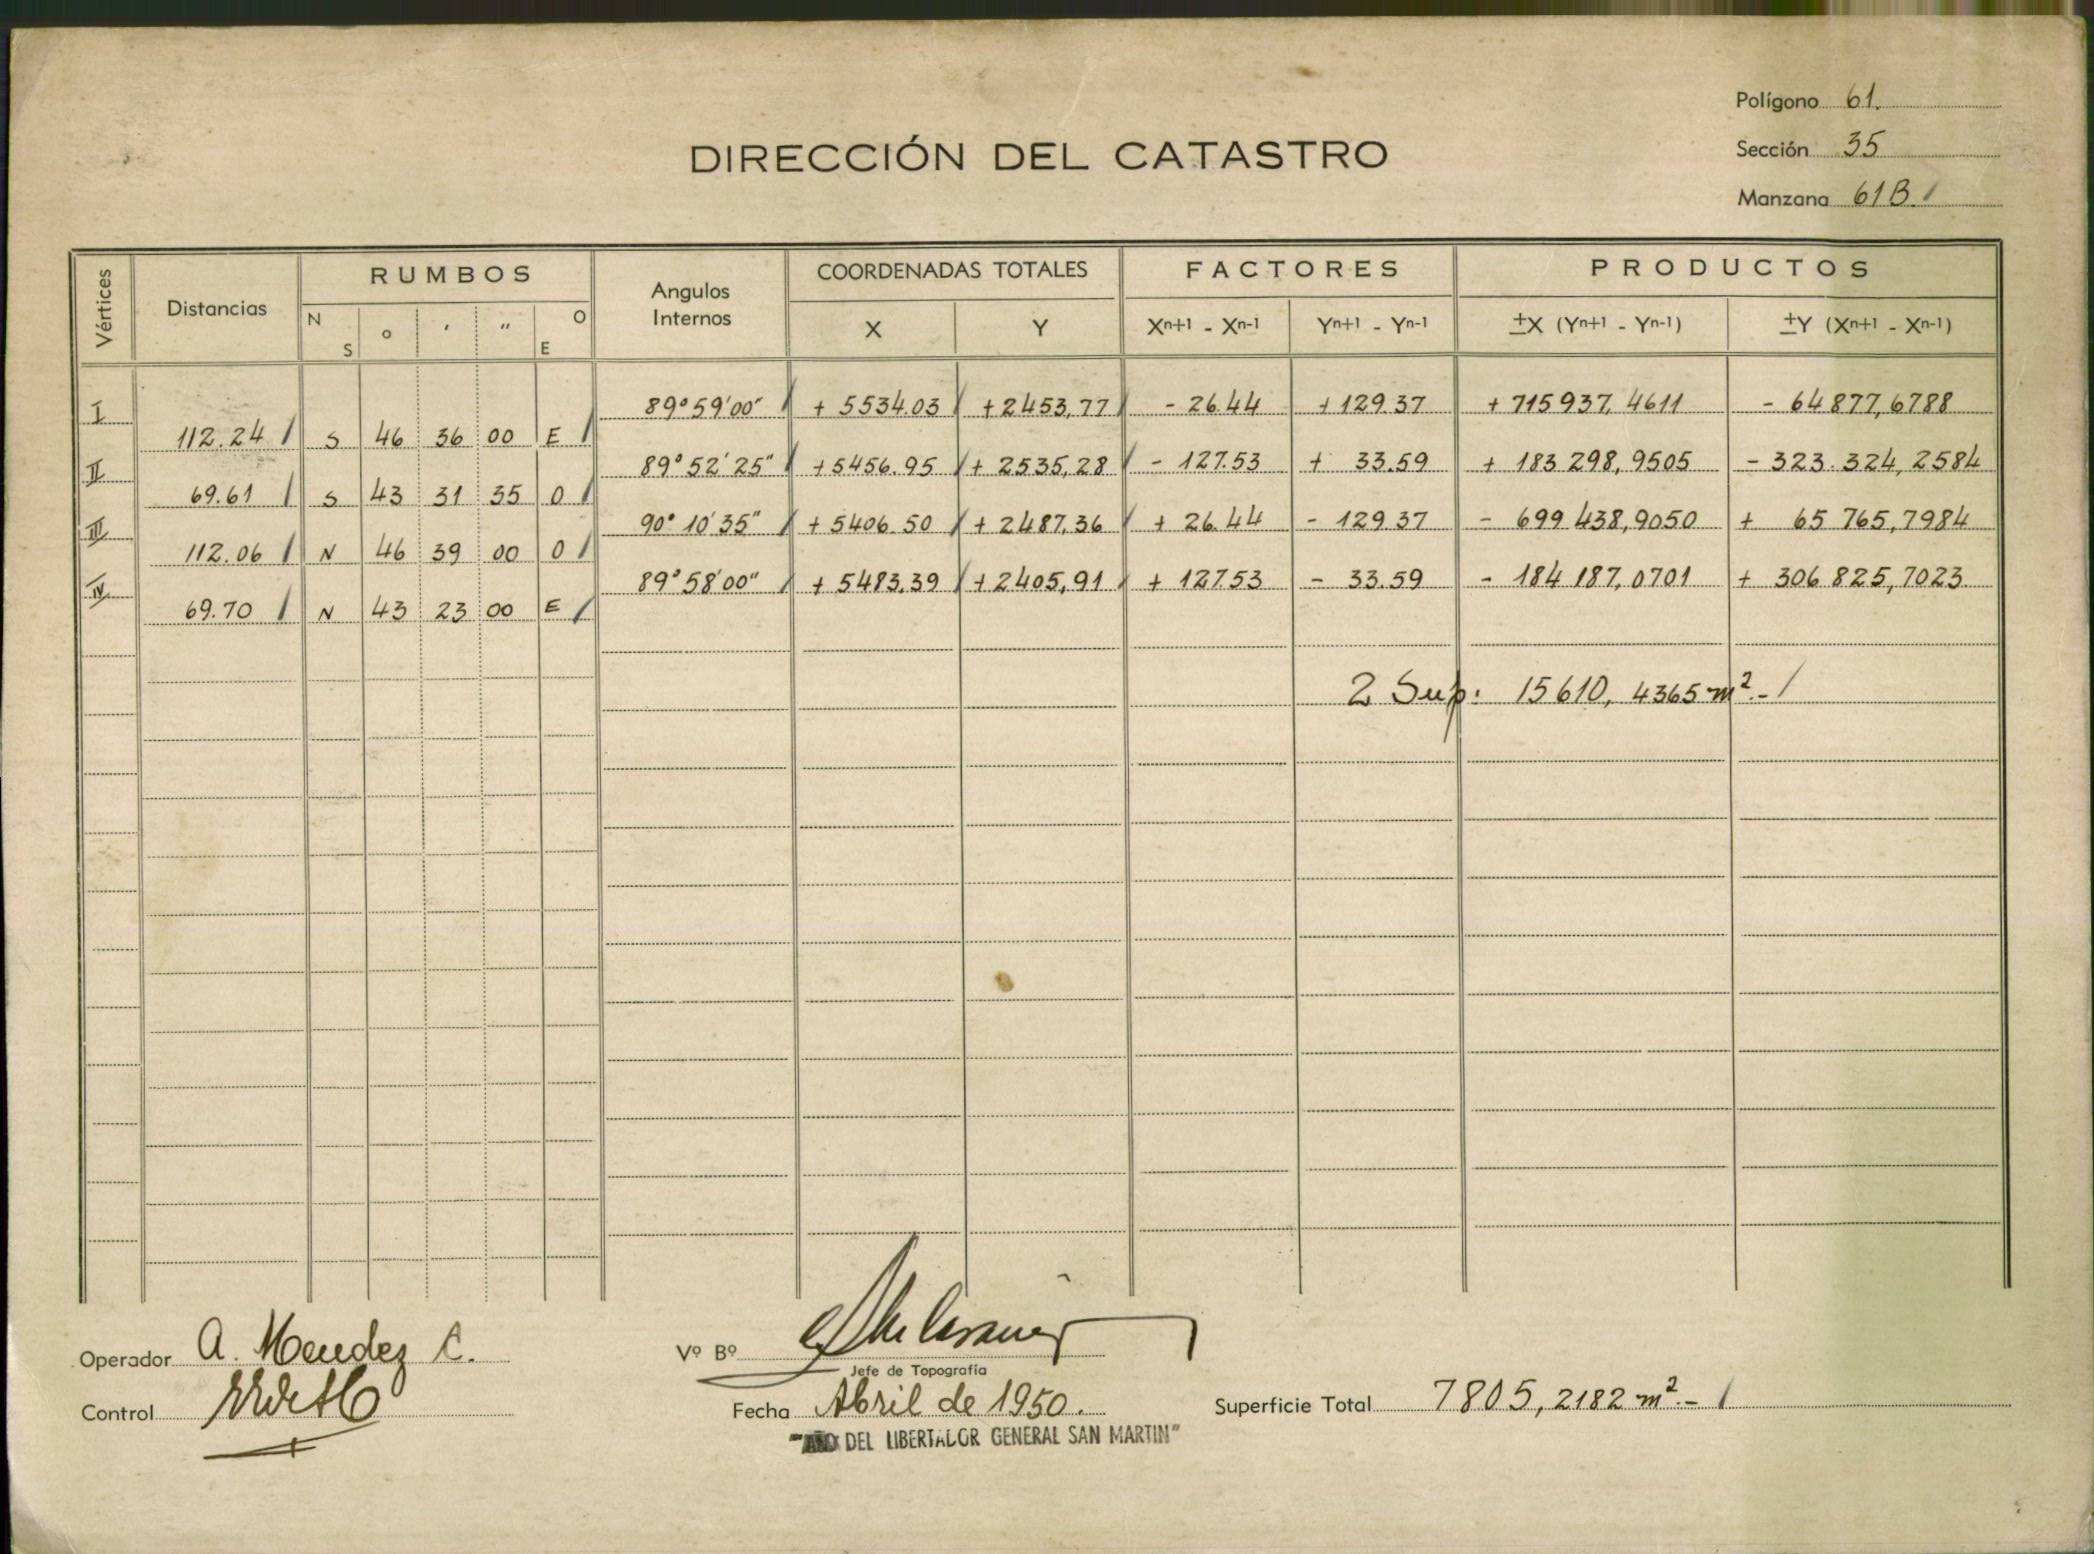 Polígono 61.
DIRECCIÓN DEL CATASTRO
Sección 35
Manzana 61B.
Vértices
Distancias
RUMBOS
N S
o
'
"
O E
Angulos Internos
COORDENADAS TOTALES
X
Y
FACTORES
Xn+1 - Xn-1
Yn+1 - Yn-1
PRODUCTOS
±X (Yn+1 - Yn-1)
±Y (Xn+1 - Xn-1)
I 89°59'00" + 5534.03 +2453,77 - 26.44 +129.37 + 715937,4611 - 64877,6788
112.24 S 46 36 00 E
II 89°52'25" +5456.95 + 2535,28 - 127.53 + 33.59 + 183298,9505 - 323.324,2584
69.61 S 43 31 35 O
III 90°10'35" + 5406.50 + 2487,36 + 26.44 - 129.37 - 699438,9050 + 65765,7984
112.06 N 46 39 00 O
IV 89°58'00" + 5483,39 + 2405,91 + 127.53 - 33.59 - 184187,0701 + 306825,7023
69.70 N 43 23 00 E
2 Sup: 15610,4365 m².-
Operador A. Mendez C.
Vº Bº
Jefe de Topografía
Control
Fecha Abril de 1950.
Superficie Total 7805,2182 m².-
"AÑO DEL LIBERTADOR GENERAL SAN MARTIN"